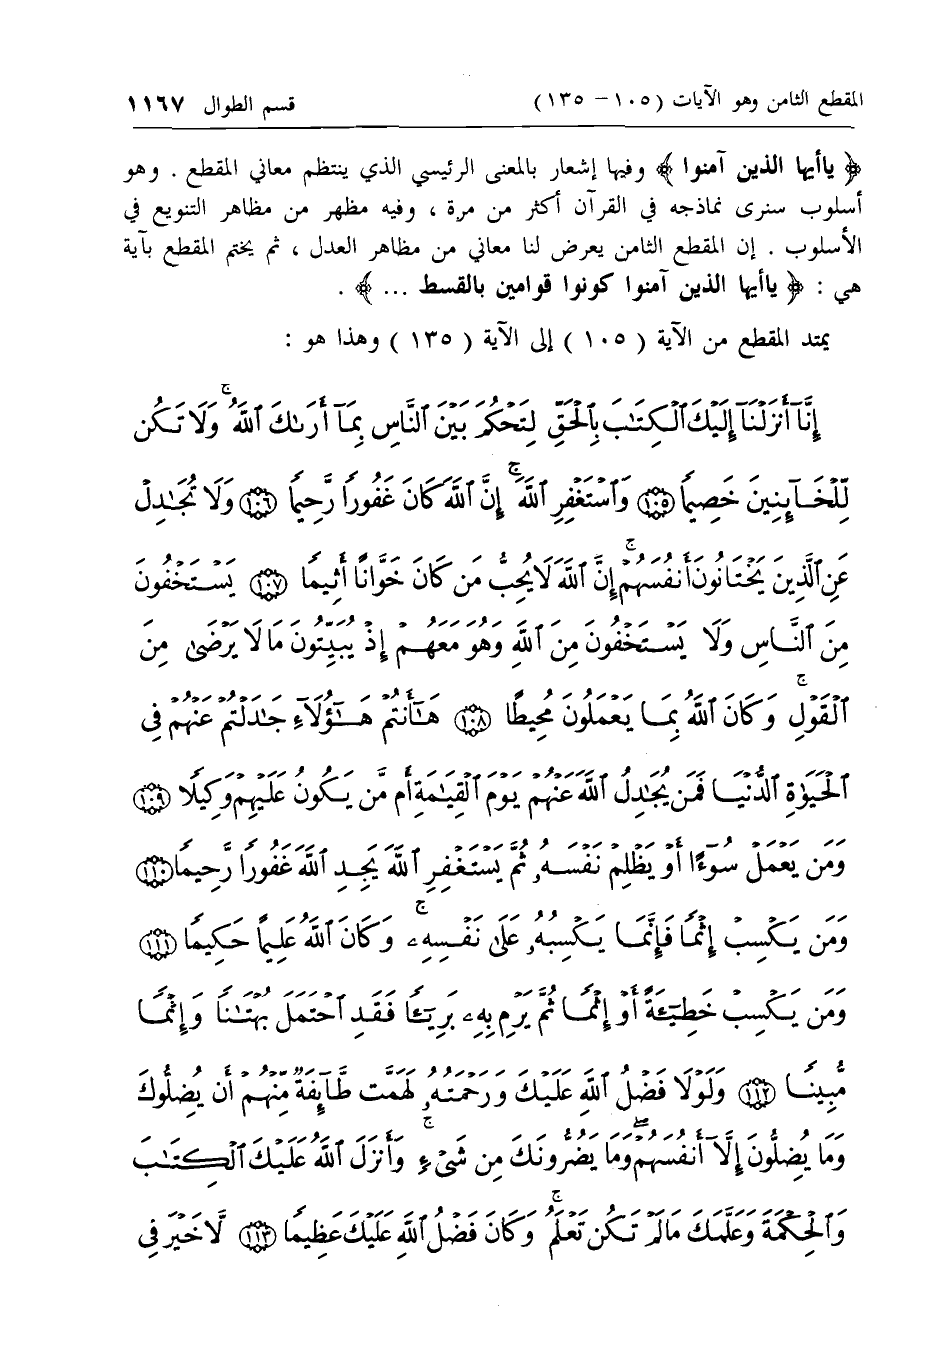 المقطع الثامن وهو الآيات (١٠٥ - ١٣٥) قسم الطوال ١١٦٧
﴿ ياأيها الذين آمنوا ﴾ وفيها إشعار بالمعنى الرئيسي الذي ينتظم معاني المقطع . وهو
أسلوب سنرى نماذجه في القرآن أكثر من مرة ، وفيه مظهر من مظاهر التنويع في
الأسلوب . إن المقطع الثامن يعرض لنا معاني من مظاهر العدل ، ثم يختم المقطع بآية
هي : ﴿ ياأيها الذين آمنوا كونوا قوامين بالقسط ... ﴾ .
يمتد المقطع من الآية ( ١٠٥ ) إلى الآية ( ١٣٥ ) وهذا هو :
إِنَّآ أَنزَلْنَآ إِلَيْكَ ٱلْكِتَٰبَ بِٱلْحَقِّ لِتَحْكُمَ بَيْنَ ٱلنَّاسِ بِمَآ أَرَىٰكَ ٱللَّهُ ۚ وَلَا تَكُن
لِّلْخَآئِنِينَ خَصِيمًا ١٠٥ وَٱسْتَغْفِرِ ٱللَّهَ ۚ إِنَّ ٱللَّهَ كَانَ غَفُورًا رَّحِيمًا ١٠٦ وَلَا تُجَٰدِلْ
عَنِ ٱلَّذِينَ يَخْتَانُونَ أَنفُسَهُمْ ۚ إِنَّ ٱللَّهَ لَا يُحِبُّ مَن كَانَ خَوَّانًا أَثِيمًا ١٠٧ يَسْتَخْفُونَ
مِنَ ٱلنَّاسِ وَلَا يَسْتَخْفُونَ مِنَ ٱللَّهِ وَهُوَ مَعَهُمْ إِذْ يُبَيِّتُونَ مَا لَا يَرْضَىٰ مِنَ
ٱلْقَوْلِ ۚ وَكَانَ ٱللَّهُ بِمَا يَعْمَلُونَ مُحِيطًا ١٠٨ هَٰٓأَنتُمْ هَٰٓؤُلَآءِ جَٰدَلْتُمْ عَنْهُمْ فِى
ٱلْحَيَوٰةِ ٱلدُّنْيَا فَمَن يُجَٰدِلُ ٱللَّهَ عَنْهُمْ يَوْمَ ٱلْقِيَٰمَةِ أَم مَّن يَكُونُ عَلَيْهِمْ وَكِيلًا ١٠٩
وَمَن يَعْمَلْ سُوٓءًا أَوْ يَظْلِمْ نَفْسَهُۥ ثُمَّ يَسْتَغْفِرِ ٱللَّهَ يَجِدِ ٱللَّهَ غَفُورًا رَّحِيمًا ١١٠
وَمَن يَكْسِبْ إِثْمًا فَإِنَّمَا يَكْسِبُهُۥ عَلَىٰ نَفْسِهِۦ ۚ وَكَانَ ٱللَّهُ عَلِيمًا حَكِيمًا ١١١
وَمَن يَكْسِبْ خَطِيٓـَٔةً أَوْ إِثْمًا ثُمَّ يَرْمِ بِهِۦ بَرِيٓـًٔا فَقَدِ ٱحْتَمَلَ بُهْتَٰنًا وَإِثْمًا
مُّبِينًا ١١٢ وَلَوْلَا فَضْلُ ٱللَّهِ عَلَيْكَ وَرَحْمَتُهُۥ لَهَمَّت طَّآئِفَةٌ مِّنْهُمْ أَن يُضِلُّوكَ
وَمَا يُضِلُّونَ إِلَّآ أَنفُسَهُمْ ۖ وَمَا يَضُرُّونَكَ مِن شَىْءٍ ۚ وَأَنزَلَ ٱللَّهُ عَلَيْكَ ٱلْكِتَٰبَ
وَٱلْحِكْمَةَ وَعَلَّمَكَ مَا لَمْ تَكُن تَعْلَمُ ۚ وَكَانَ فَضْلُ ٱللَّهِ عَلَيْكَ عَظِيمًا ١١٣ لَّا خَيْرَ فِى